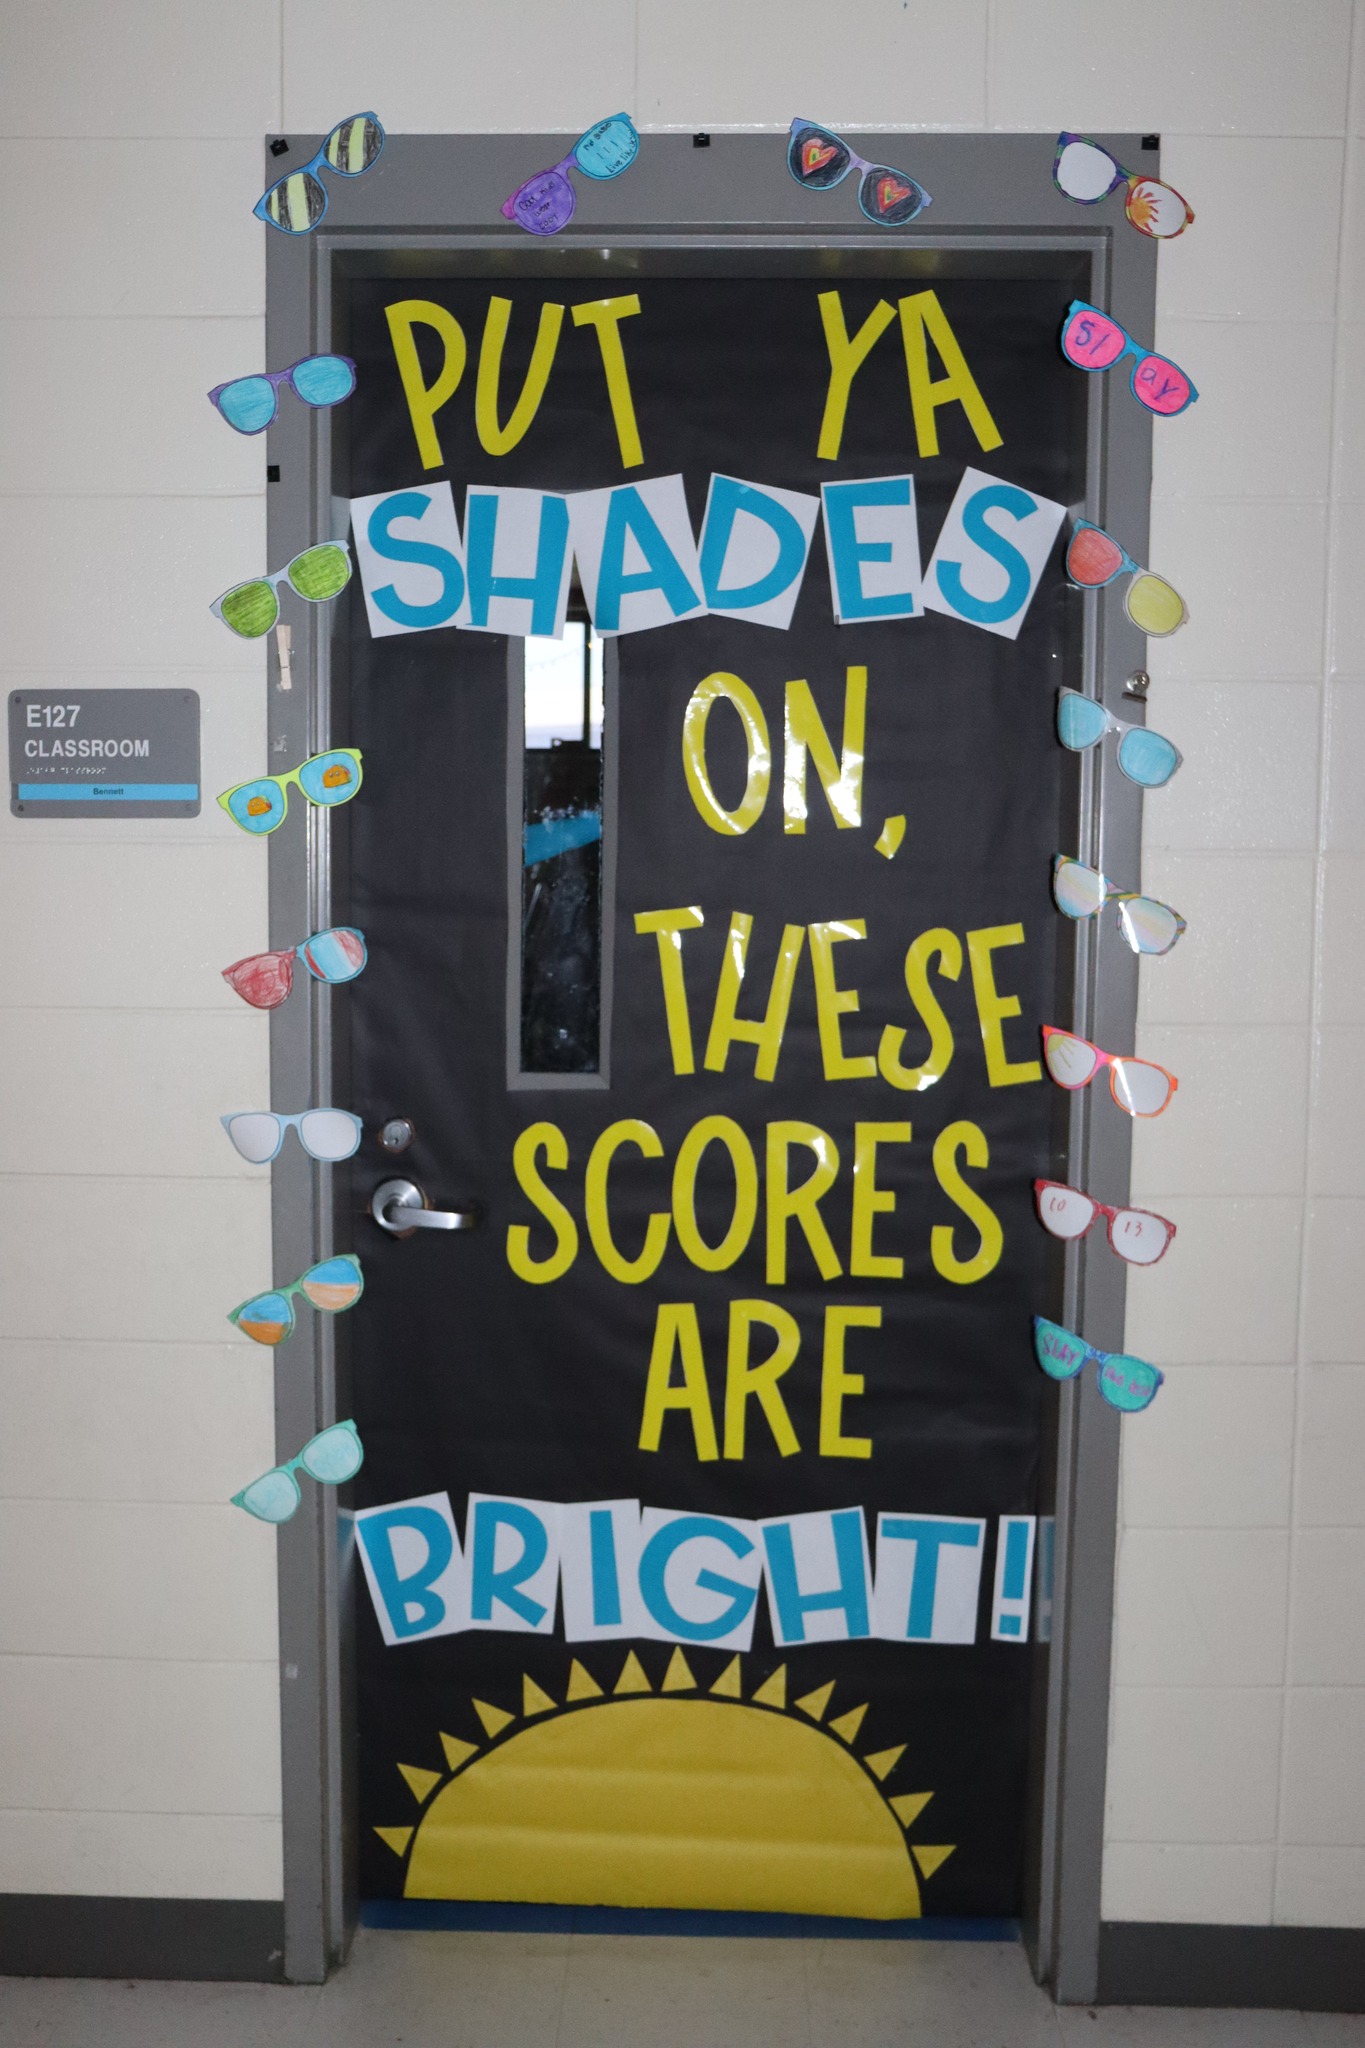 PUT YA
SHADES
ON,
THESE
SCORES
ARE
BRIGHT!
E127
CLASSROOM
Bennett
Sl
ay
10
13
SLAY